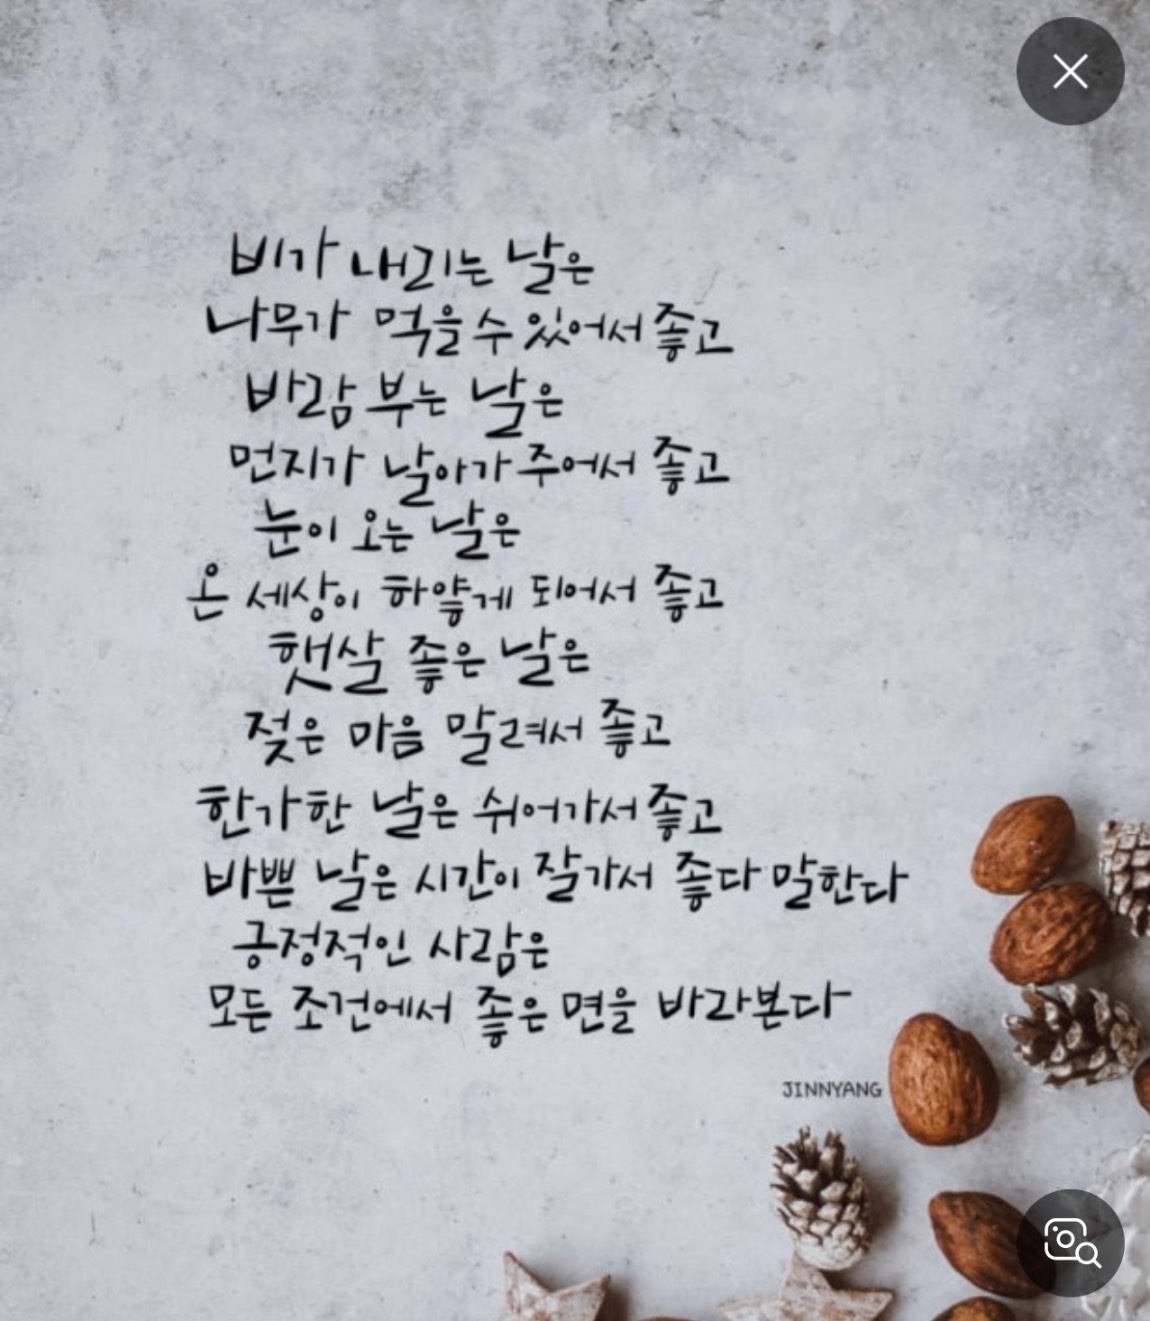 비가 내리는 날은
나무가 먹을 수 있어서 좋고
바람 부는 날은
먼지가 날아가 주어서 좋고
눈이 오는 날은
온 세상이 하얗게 되어서 좋고
햇살 좋은 날은
젖은 마음 말려서 좋고
한가한 날은 쉬어가서 좋고
바쁜 날은 시간이 잘가서 좋다 말한다
긍정적인 사람은
모든 조건에서 좋은 면을 바라본다
JINNYANG